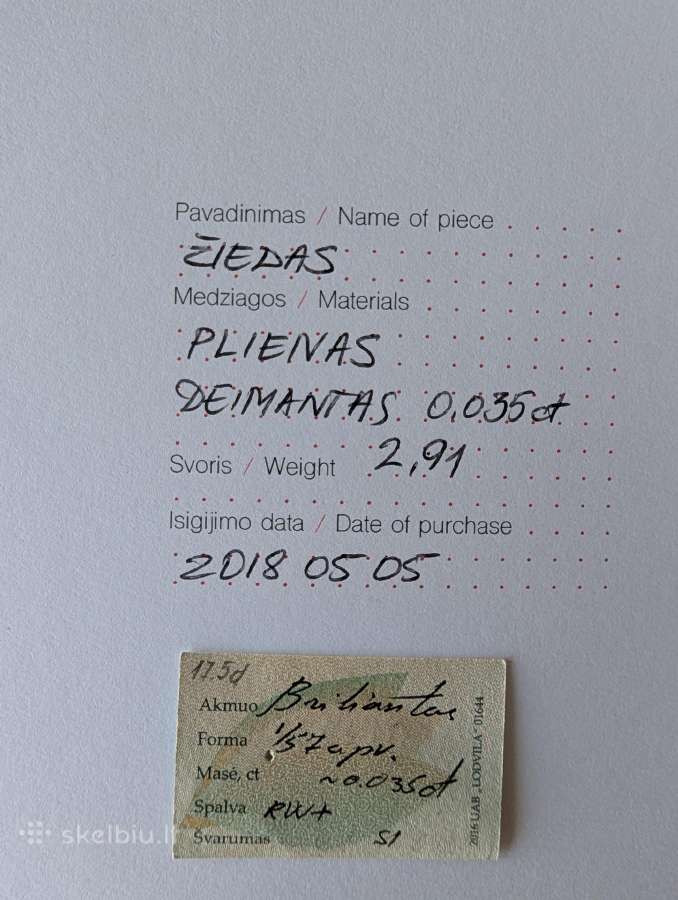 Pavadinimas / Name of piece
ŽIEDAS
Medziagos / Materials
PLIENAS
DEIMANTAS 0,035ct
Svoris / Weight 2,91
Isigijimo data / Date of purchase
2018 05 05
17.5d
Akmuo Briliantas
Forma 1/57 apv.
Masė, ct ~0.035ct
Spalva RW+
Švarumas SI
2016 UAB „LODVILA“ 01644
skelbiu.lt